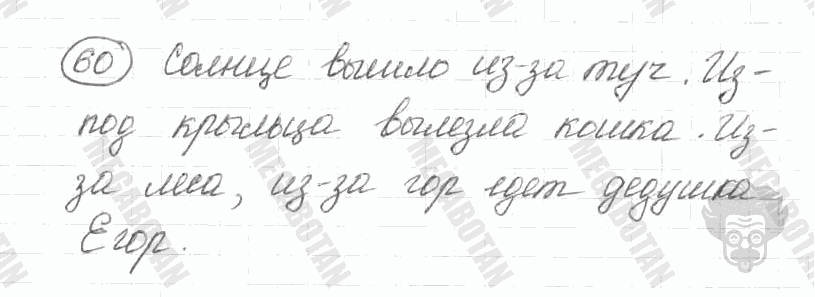 60 Солнце вышло из-за туч. Из-
под крыльца вылезла кошка. Из-
за леса, из-за гор едет дедушка
Егор.
MEGABOTAN